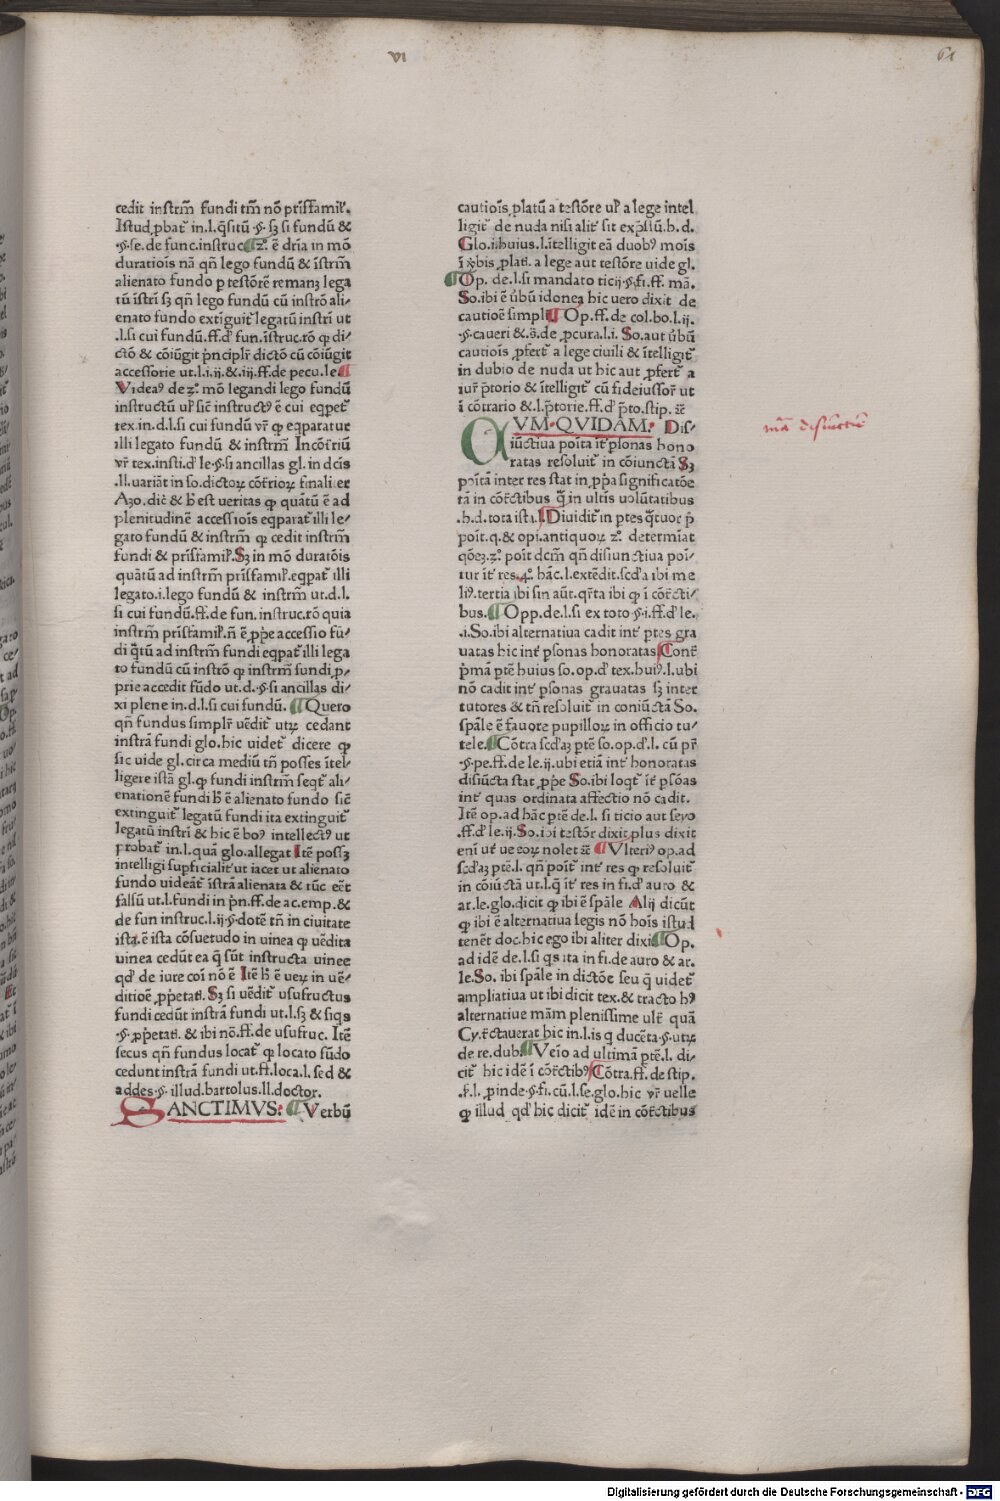 VI
61
cedit instrm̄ fundi tm̄ nō prīsfamil'.
Istud ꝓbat̄ in.l.q̄sitū.§.sꝫ si fundū &
.§.se.de func.instruc ¶ zº. ē dr̄ia in mō
duratiōis nā qn̄ lego fundū & īstrm̄
alienato fundo p testōrē remanꝫ lega
tū īstrī sꝫ qn̄ lego fundū cū instrō ali/
enato fundo extīguit̄ legatū instrī ut
.l.si cui fundū.ff.d' fun.īstruc.rō ꝙ di/
ctō & cōiūgit p̄ncipl'r dictō cū cōiūgit
accessorie ut.l.i.ij.&.iij.ff.de pecu.le ¶
Videaꝰ de zº. mō legandi lego fundū
instructū ul' sic̄ instructꝰ ē cui eqꝑet̄
tex.in.d.l.si cui fundū vr̄ ꝙ eqꝑaratur
illi legato fundū & instrm̄ In cōtriū
vr̄ tex.insti.d' le.§.si ancillas gl.in dc̄is
.ll.variāt in so.dictoꝝ cōtrioꝝ finaliter
Azo.dic̄ & h̄ est veritas ꝙ quātū ē ad
plenitudinē accessiōis eqꝑarat̄ illi le/
gato fundū & instrm̄ ꝙ cedit instrm̄
fundi & prīsfamil'. Sꝫ in mō duratiōis
quātū ad instrm̄ prīsfamil'.eqꝑat̄ illi
legato.i.lego fundū & instrm̄ ut.d.l.
si cui fundū.ff.de fun.instruc.rō quia
instrm̄ prīsfamil'.n̄ ē ꝓp̄e accessio fū/
di q̄tū ad instrm̄ fundi eqꝑat̄ illi lega
to fundū cū instrō ꝙ instrm̄ fundi ꝓ/
prie accedit fūdo ut.d.§.si ancillas di/
xi plene in.d.l.si cui fundū. ¶ Quero
qn̄ fundus simpl'r uēdit̄ utꝝ cedant
instrā fundi glo.hic uidet̄ dicere ꝙ
sic uide gl.circa mediū tn̄ posses ītel/
ligere istā gl.ꝙ fundi instrm̄ seqt̄ ali/
enationē fundi h̄ ē alienato fundo sic̄
extinguit̄ legatū fundi ita extinguit̄
legatū instrī & hic ē boꝰ intellectꝰ ut
probat̄ in.l.quā glo.allegat Itē possꝫ
intelligi supficialit̄ ut iacet ut alienato
fundo uideāt̄ īstrā alienata & tūc eēt
falsū ut.l.fundi in p̄n.ff.de ac.emp.&
de fun instruc.l.ij.§.dotē tn̄ in ciuitate
ista.ē ista cōsuetudo in uinea ꝙ uēdita
uinea cedūt ea q̄ sūt instructa uinee
qd' de iure coī nō ē Itē h̄ ē ueꝝ in uē/
ditiōe ꝓp̄etati. Sꝫ si uēdit̄ usufructus
fundi cedūt instrā fundi ut.l.sꝫ & siqs
.§.ꝓp̄etati. & ibi nō.ff.de usufruc. Itē
secus qn̄ fundus locat̄ ꝙ locato fūdo
cedunt instrā fundi ut.ff.loca.l.sed &
addes.§.illud.bartolus.ll.doctor.
SANCTIMVS: ¶ Verbū
cautiōis ꝓlatū a testōre ul' a lege intel
ligit̄ de nuda nisi alit̄ sit exp̄ssū.h.d.
Glo.i.huius.l.ītelligit eā duobꝰ mōis
¶ Op. de.l.si mandato ticij.§.fi.ff. mā.
So.ibi ē ūbū idonea hic uero dixit de
cautiōe simpli ¶ Op.ff.de col.bo.l.ij.
cautiōis ꝓfert̄ a lege ciuili & ītelligit̄
in dubio de nuda ut hic aut ꝓfert̄ a
iur' p̄torio & ītelligit̄ cū fideiussor' ut
ī cōtrario & .l.p̄torie.ff.d' p̄to.stip. ⁊c̄
QVM QVIDAM: Dis/
iūctiua poīta īt̄ ꝑsonas hono
ratas resoluit̄ in cōiunctā Sꝫ
poītā inter res stat in ꝓp̄a significatōe
tā in cōtr̄ctibus q̄ in ultīs uolūtatibus
.h.d.tota ista.l. Diuidit̄ in ptes q̄tuor p̄
poīt.q.& opi.antiquoꝝ zº. determīat
qōeꝫ.zº. poīt dcm̄ qn̄ disiunctiua poī/
tur īt̄ res.4º. hāc.l.extēdit.scd'a ibi me
liꝰ.tertia ibi sin aūt.qrta ibi ꝙ ī cōtr̄cti/
bus. ¶ Opp.de.l.si ex toto.§.i.ff.d' le.
.i.So.ibi alternatiua cadit int̄ ptes gra
uatas hic int̄ ꝑsonas honoratas Cont̄
p̄mā ptē huius so.op.d' tex.huiꝰ.l.ubi
nō cadit int̄ ꝑsonas grauatas sꝫ inter
tutores & tn̄ resoluit̄ in coniūctā So.
spāle ē fauore pupilloꝝ in officio tu/
tele. ¶ Cōtra scd'aꝫ ptē so.op.d'.l. cū pr̄
.§.pe.ff.de le.ij.ubi etiā int̄ honoratas
disiūcta stat ꝓp̄e So.ibi loqt̄ īt̄ ꝑsōas
int̄ quas ordinata affectio nō cadit.
Itē op.ad hāc ptē de.l. si ticio aut seyo
.ff.d' le.ij.So.ibi testōr dixit plus dixit
enī ut̄ ueꝝ nolet ⁊c̄ ¶ Vlteriꝰ op.ad
scd'aꝫ ptē.l. qn̄ poīt̄ int̄ res ꝙ resoluit̄
in cōiūctā ut.l.q̄ īt̄ res in fi.d' auro &
ar.le.glo.dicit ꝙ ibi ē spāle Alij dicūt
ꝙ ibi ē alternatiua legis nō hoīs istud
tenēt doc.hic ego ibi aliter dixi ¶ Op.
ad idē de.l.si qs ita in fi.de auro & ar.
le.So. ibi spāle in dictōe seu q̄ uidet̄
ampliatiua ut ibi dicit tex.& tracto hꝰ
alternatiue mām plenissime ult̄ quā
Cy.tr̄ctauerat hic in.l.is q ducēta.§.utꝝ
de re.dub. ¶ Veīo ad ultimā ptē.l. di/
cit̄ hic idē ī cōtr̄ctibꝰ Cōtra.ff.de stip.
.f.l.ꝓinde.§.fi.cū.l.se.glo.hic vr̄ uelle
ꝙ illud qd' hic dicit̄ idē in cōtr̄ctibus
Digitalisierung gefördert durch die Deutsche Forschungsgemeinschaft - DFG